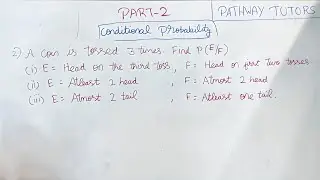 PART-2
PATHWAY TUTORS
Conditional Probability
2) A Coin is tossed 3 times. Find P(E/F)
(i) E = Head on the third toss, F = Head on first two tosses.
(ii) E = Atleast 2 head , F = Atmost 2 head
(iii) E = Atmost 2 tail , F = Atleast one tail.